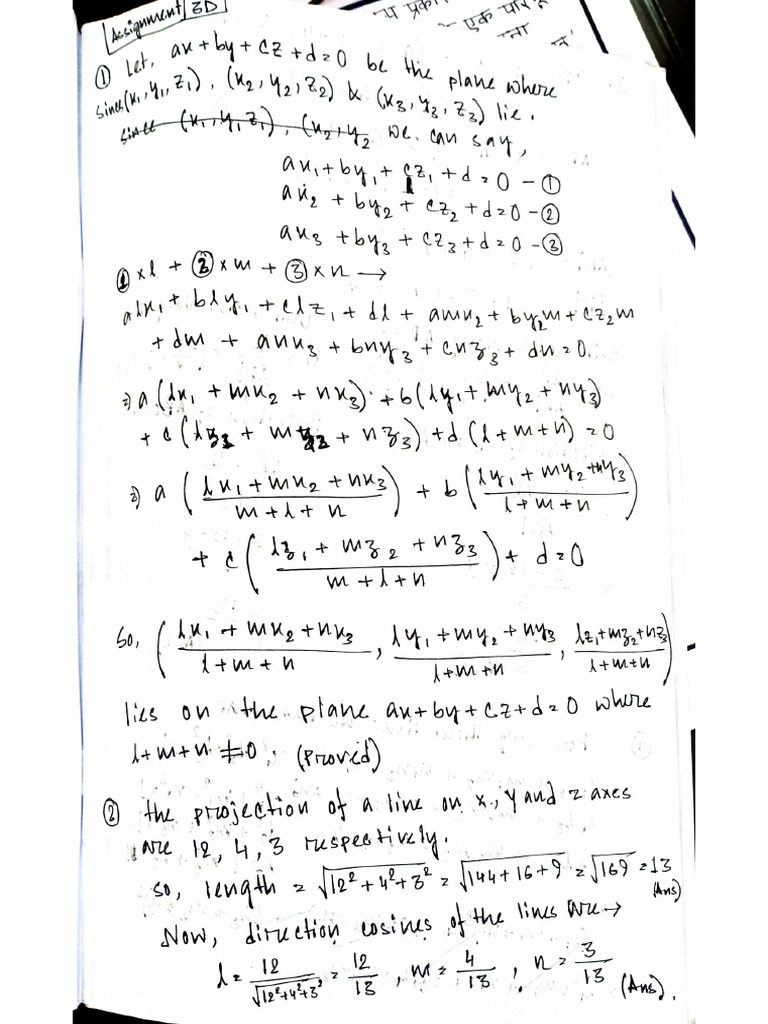 Assignment 3D
प प्रका
एक पा
① Let, ax+by+cz+d=0 be the plane where
since (x₁,y₁,z₁), (x₂,y₂,z₂) & (x₃,y₃,z₃) lie.
since (x₁,y₁,z₁), (x₂,y₂ we can say,
ax₁+by₁+cz₁+d=0 -①
ax₂+by₂+cz₂+d=0-②
ax₃+by₃+cz₃+d=0-③
①×l + ②×m + ③×n →
alx₁+bly₁+clz₁+dl+amx₂+by₂m+cz₂m
+dm+anx₃+bny₃+cnz₃+dn=0.
⇒ a(lx₁+mx₂+nx₃)+b(ly₁+my₂+ny₃)
+c(lz₁+mz₂+nz₃)+d(l+m+n)=0
⇒ a((lx₁+mx₂+nx₃)/(m+l+n)) + b((ly₁+my₂+ny₃)/(l+m+n))
+ c((lz₁+mz₂+nz₃)/(m+l+n)) + d=0
So, ((lx₁+mx₂+nx₃)/(l+m+n), (ly₁+my₂+ny₃)/(l+m+n), (lz₁+mz₂+nz₃)/(l+m+n))
lies on the plane ax+by+cz+d=0 where
l+m+n≠0. (Proved)
② the projection of a line on x, y and z axes
are 12, 4, 3 respectively.
so, length = √(12²+4²+3²) = √(144+16+9) = √169 = 13 (Ans)
Now, direction cosines of the lines are→
l = 12/√(12²+4²+3²) = 12/13, m = 4/13, n = 3/13 (Ans).